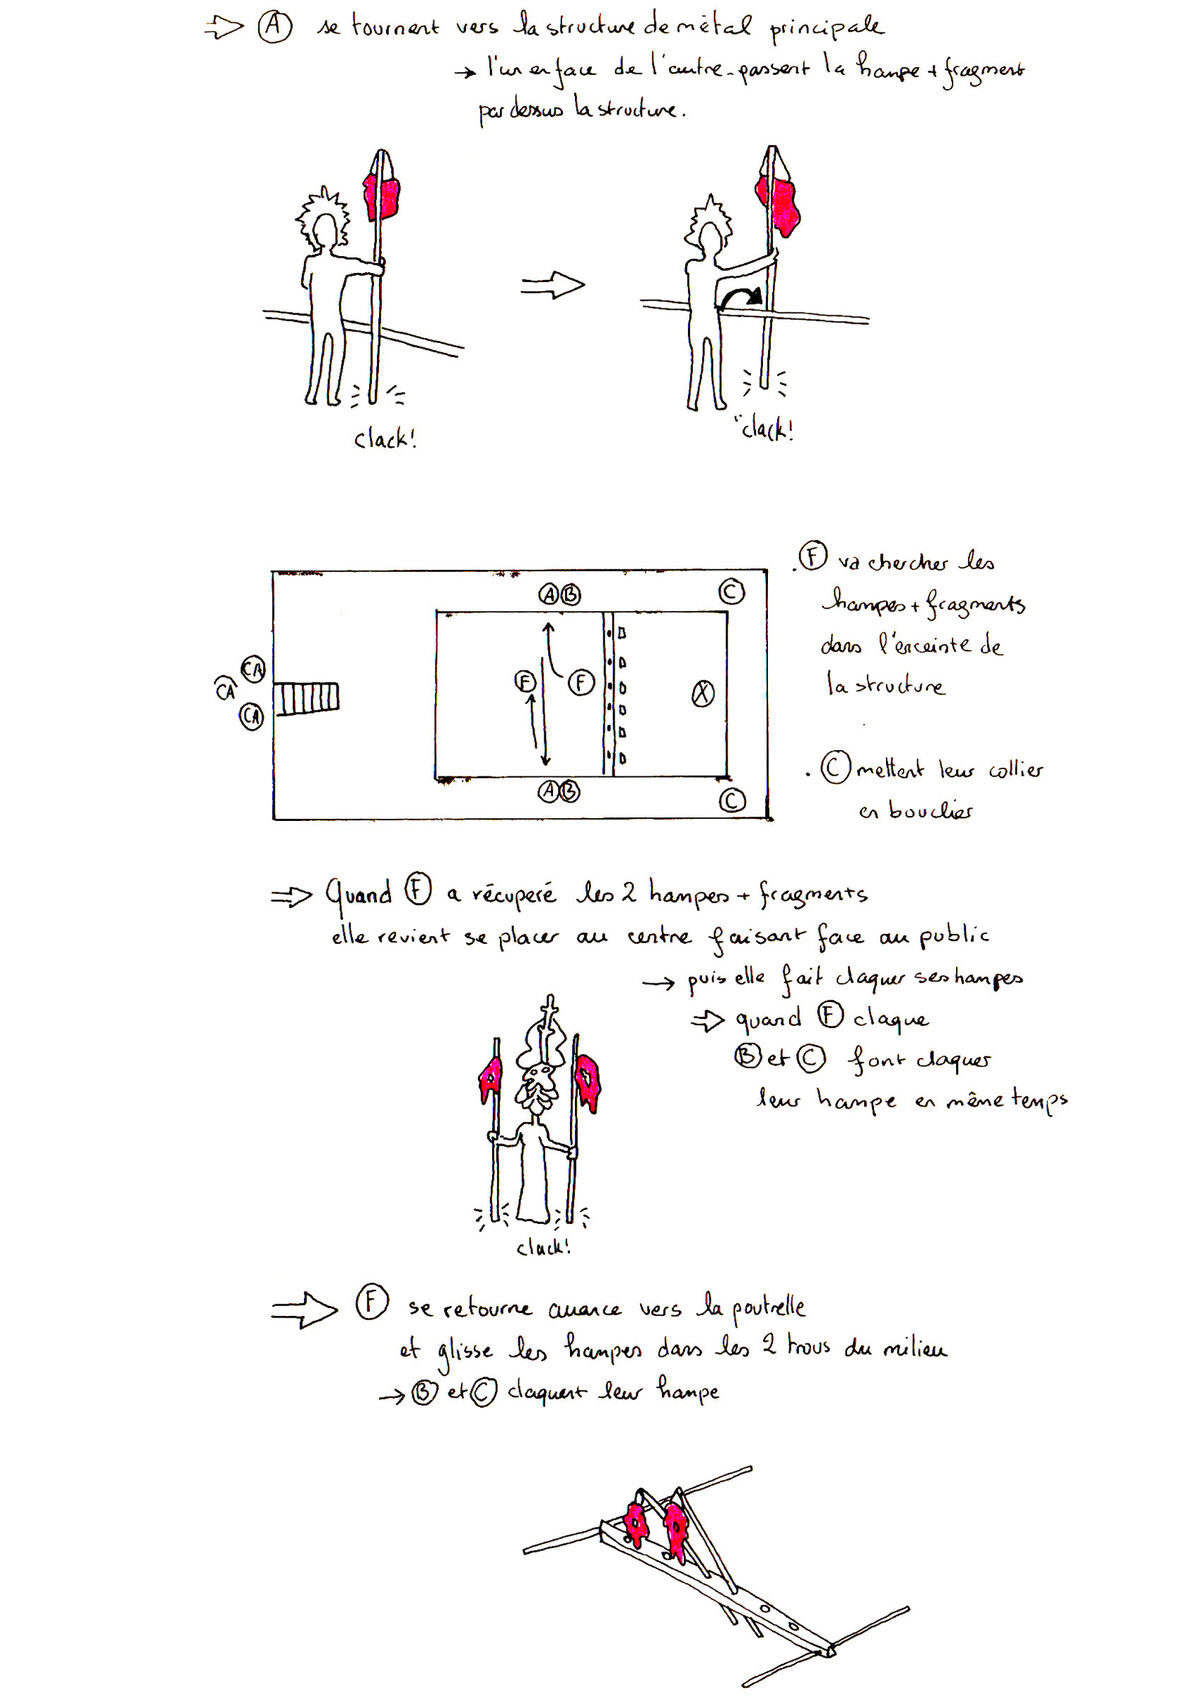 ⇒ Ⓐ se tournent vers la structure de métal principale
→ l'un en face de l'autre - passent la hampe + fragment
par dessus la structure.
clack!
"clack!
. Ⓕ va chercher les
hampes + fragments
dans l'enceinte de
la structure
A B
C
CA
CA
CA
F
F
X
A B
C
. Ⓒ mettent leur collier
en bouclier
⇒ Quand Ⓕ a récuperé les 2 hampes + fragments
elle revient se placer au centre faisant face au public
→ puis elle fait claquer ses hampes
⇒ quand Ⓕ claque
Ⓑ et Ⓒ font claquer
leur hampe en même temps
clack!
⇒ Ⓕ se retourne avance vers la poutrelle
et glisse les hampes dans les 2 trous du milieu
→ Ⓑ et Ⓒ claquent leur hampe